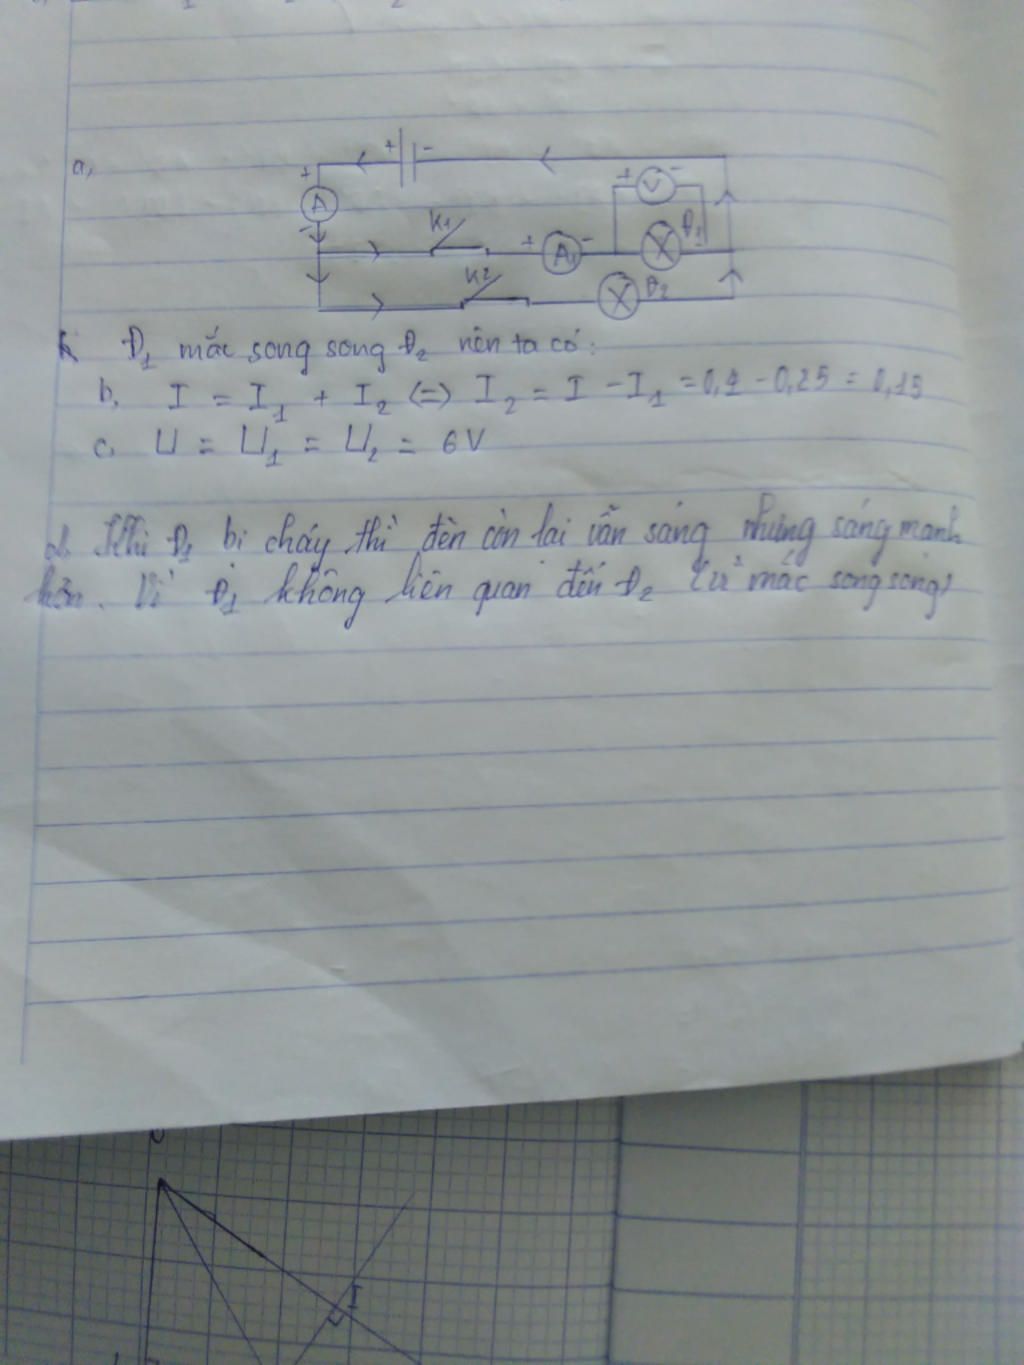 a,
+ -
A +
K1 + A1 - + V - Đ1
K2 Đ2
Đ1 mắc song song Đ2 nên ta có:
b, I = I1 + I2 (=) I2 = I - I1 = 0,4 - 0,25 = 0,15
c, U = U1 = U2 = 6V
d. Khi Đ1 bị cháy thì đèn còn lại vẫn sáng nhưng sáng mạnh
hơn. Vì Đ1 không liên quan đến Đ2 mắc song song)
I